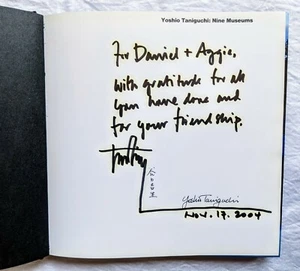 Yoshio Taniguchi: Nine Museums
For Daniel + Aggie,
with gratitude for all
you have done and
for your friendship.
Yoshio Taniguchi
Nov. 17. 2004